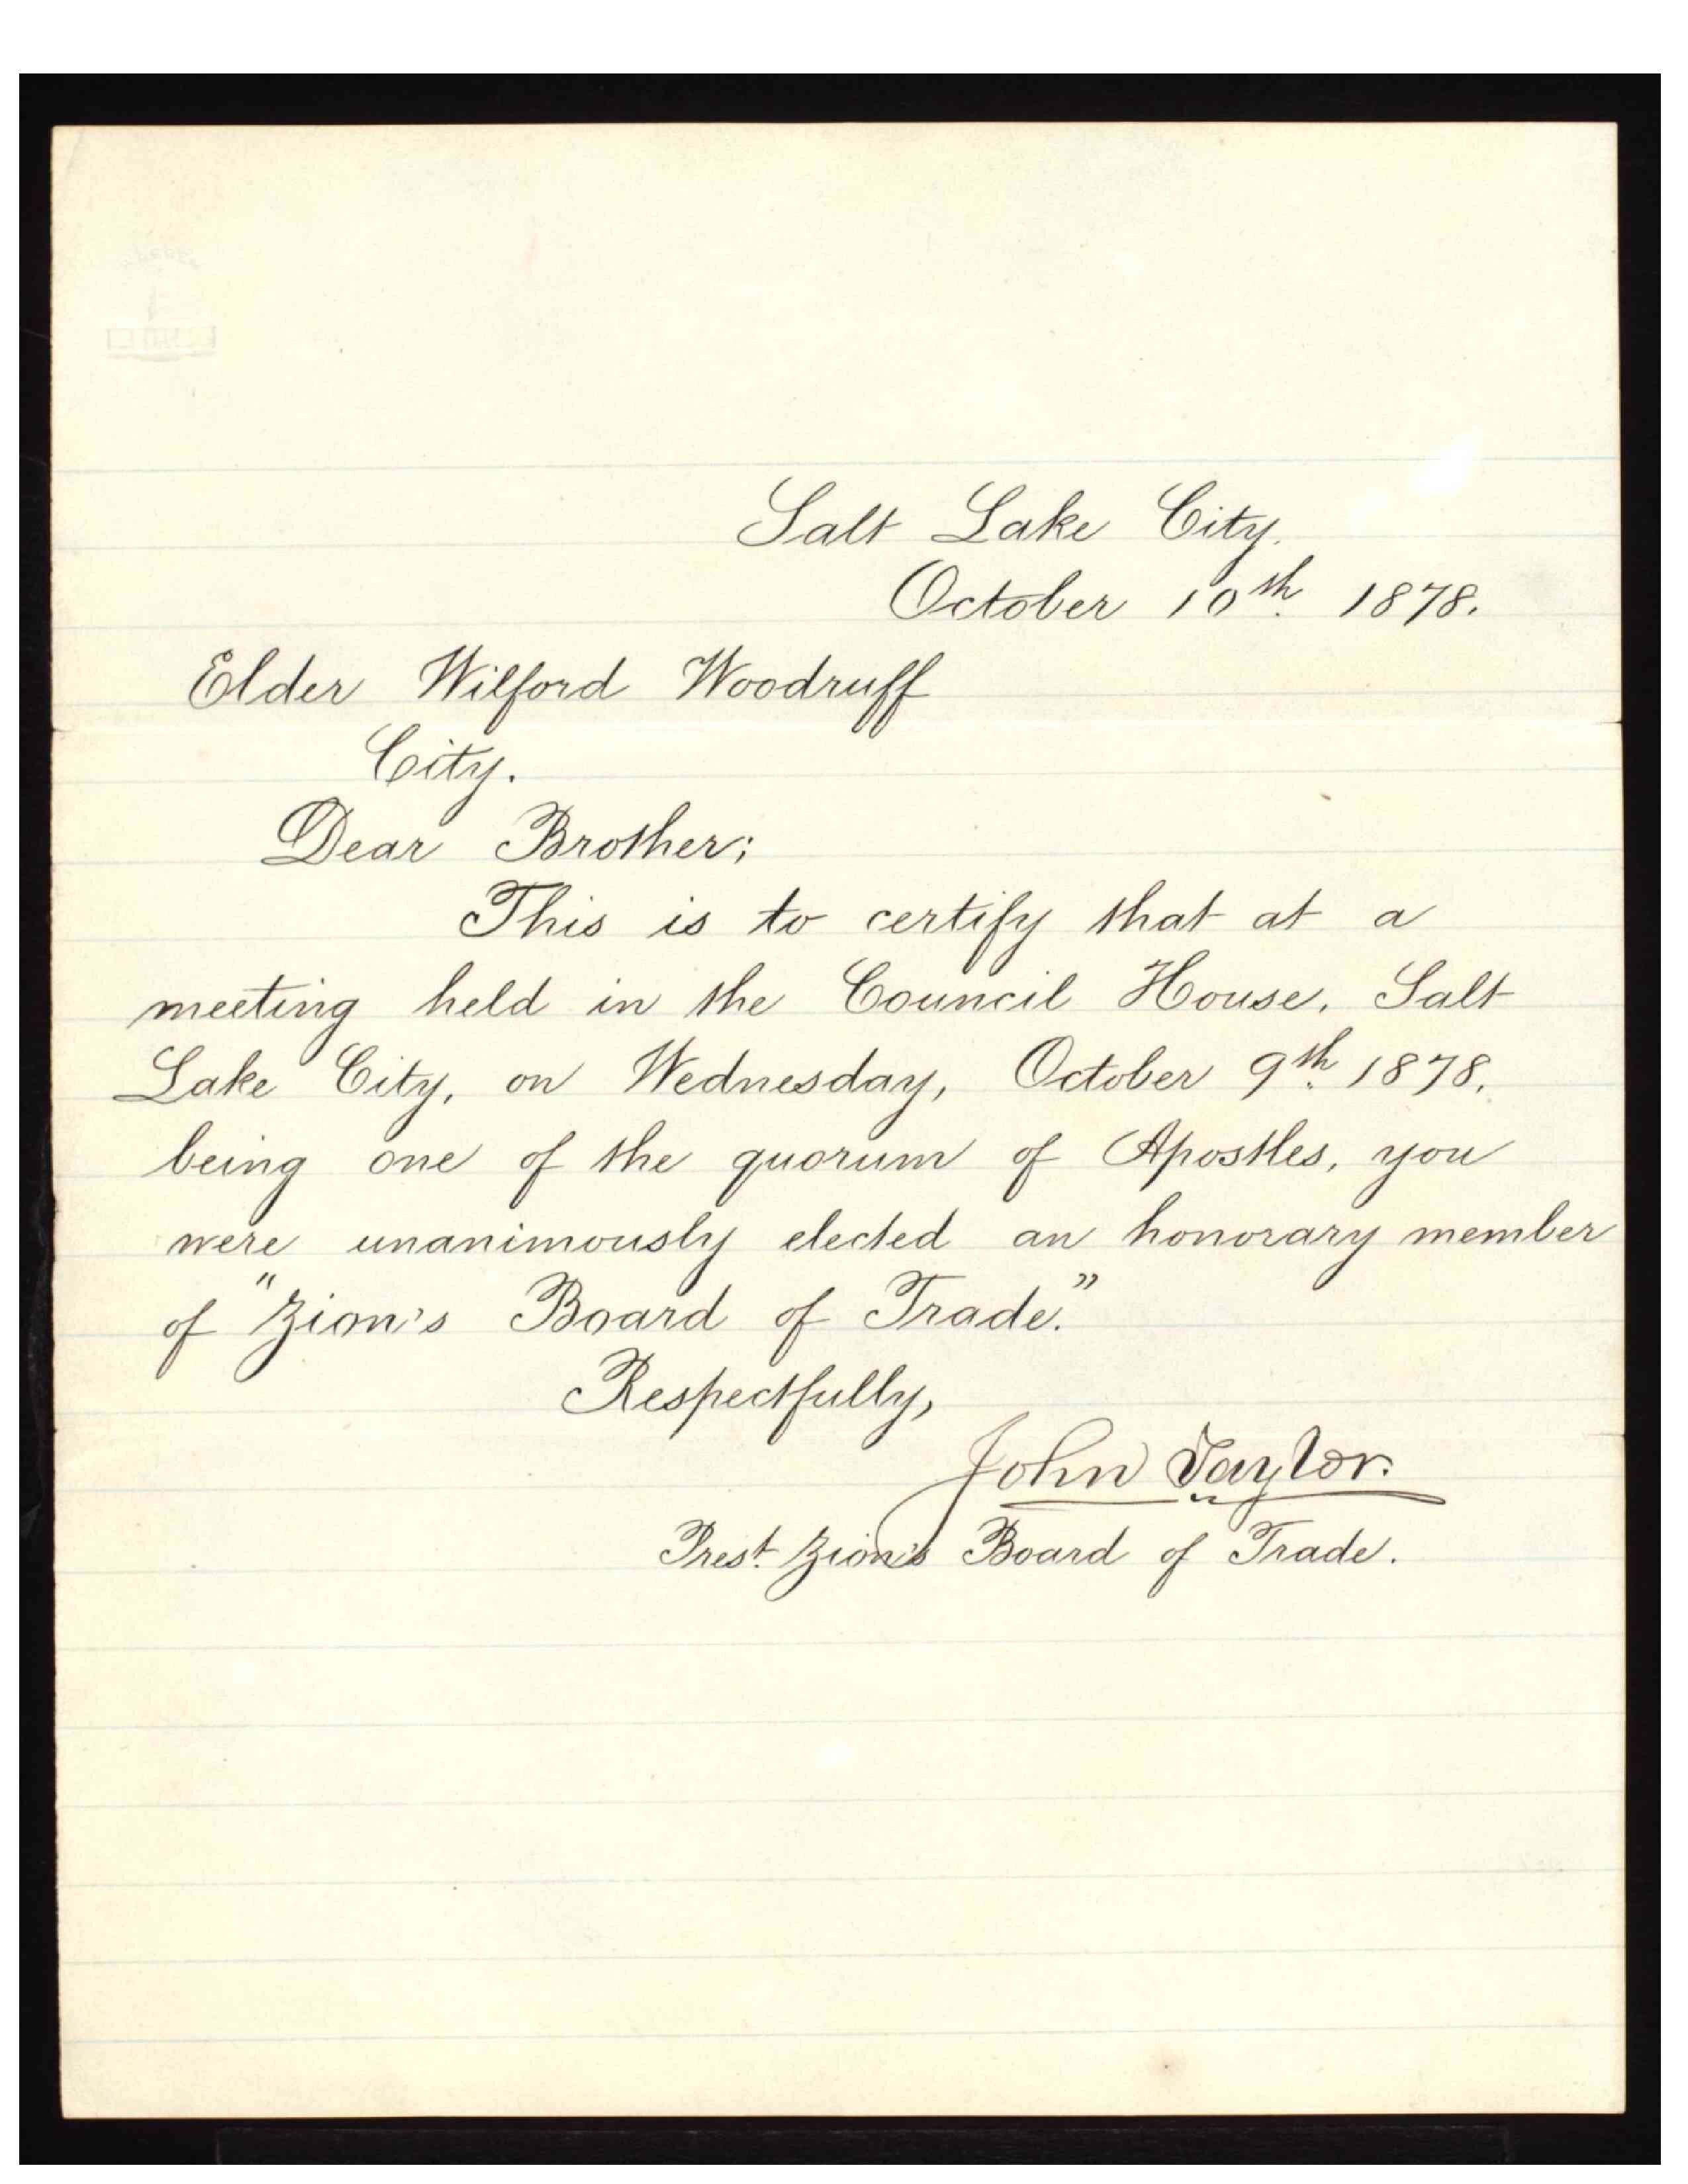 Salt Lake City.
October 10th. 1878.
Elder Wilford Woodruff
City.
Dear Brother;
This is to certify that at a
meeting held in the Council House, Salt
Lake City, on Wednesday, October 9th. 1878,
being one of the quorum of Apostles, you
were unanimously elected an honorary member
of "Zion's Board of Trade."
Respectfully,
John Taylor.
Prest. Zion's Board of Trade.